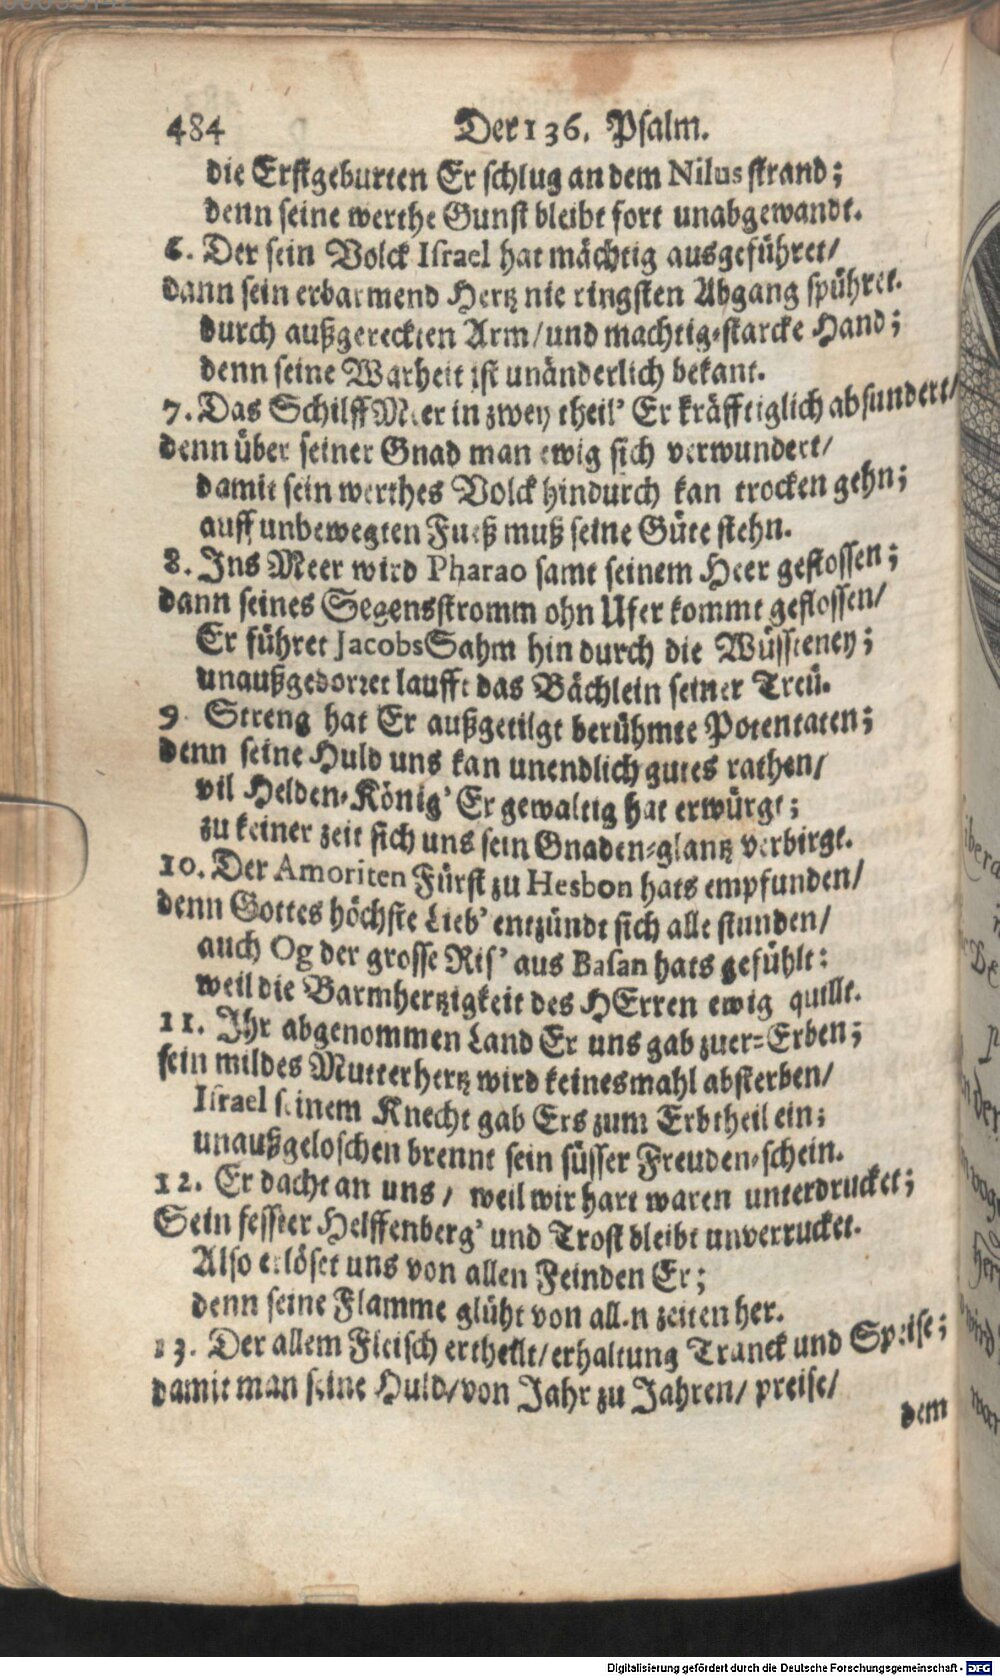 484 Der 136. Psalm.
die Erstgeburten Er schlug an dem Nilus strand;
denn seine werthe Gunst bleibt fort unabgewandt.
6. Der sein Volck Israel hat mächtig ausgeführet/
dann sein erbarmend Hertz nie ringsten Abgang spühret.
durch außgereckten Arm/und machtig-starcke Hand;
denn seine Warheit ist unänderlich bekant.
7. Das Schilff Meer in zwey theil' Er kräfftiglich absundert/
denn über seiner Gnad man ewig sich verwundert/
damit sein werthes Volck hindurch kan trocken gehn;
auff unbewegten Fueß muß seine Güte stehn.
8. Ins Meer wird Pharao samt seinem Heer gestossen;
dann seines Segensstromm ohn Ufer kommt geflossen/
Er führet Jacobs Sahm hin durch die Wüssteney;
unaußgedorret laufft das Bächlein seiner Treü.
9. Streng hat Er außgetilgt berühmte Potentaten;
denn seine Huld uns kan unendlich gutes rathen/
vil Helden-König' Er gewaltig hat erwürgt;
zu keiner zeit sich uns sein Gnaden-glantz verbirgt.
10. Der Amoriten Fürst zu Hesbon hats empfunden/
denn Gottes höchste Lieb' entzündt sich alle stunden/
auch Og der grosse Ris' aus Basan hats gefühlt:
weil die Barmhertzigkeit des HErren ewig quillt.
11. Ihr abgenommen Land Er uns gab zuer-Erben;
sein mildes Mutterhertz wird keinesmahl absterben/
Israel seinem Knecht gab Ers zum Erbtheil ein;
unaußgeloschen brennt sein süsser Freuden-schein.
12. Er dacht an uns / weil wir hart waren unterdrucket;
Sein fesster Helffenberg' und Trost bleibt unverrucket.
Also erlöset uns von allen Feinden Er;
denn seine Flamme glüht von allen zeiten her.
13. Der allem Fleisch ertheilt/erhaltung Tranck und Speise;
damit man seine Huld/von Jahr zu Jahren/ preise/
dem
Digitalisierung gefördert durch die Deutsche Forschungsgemeinschaft - DFG